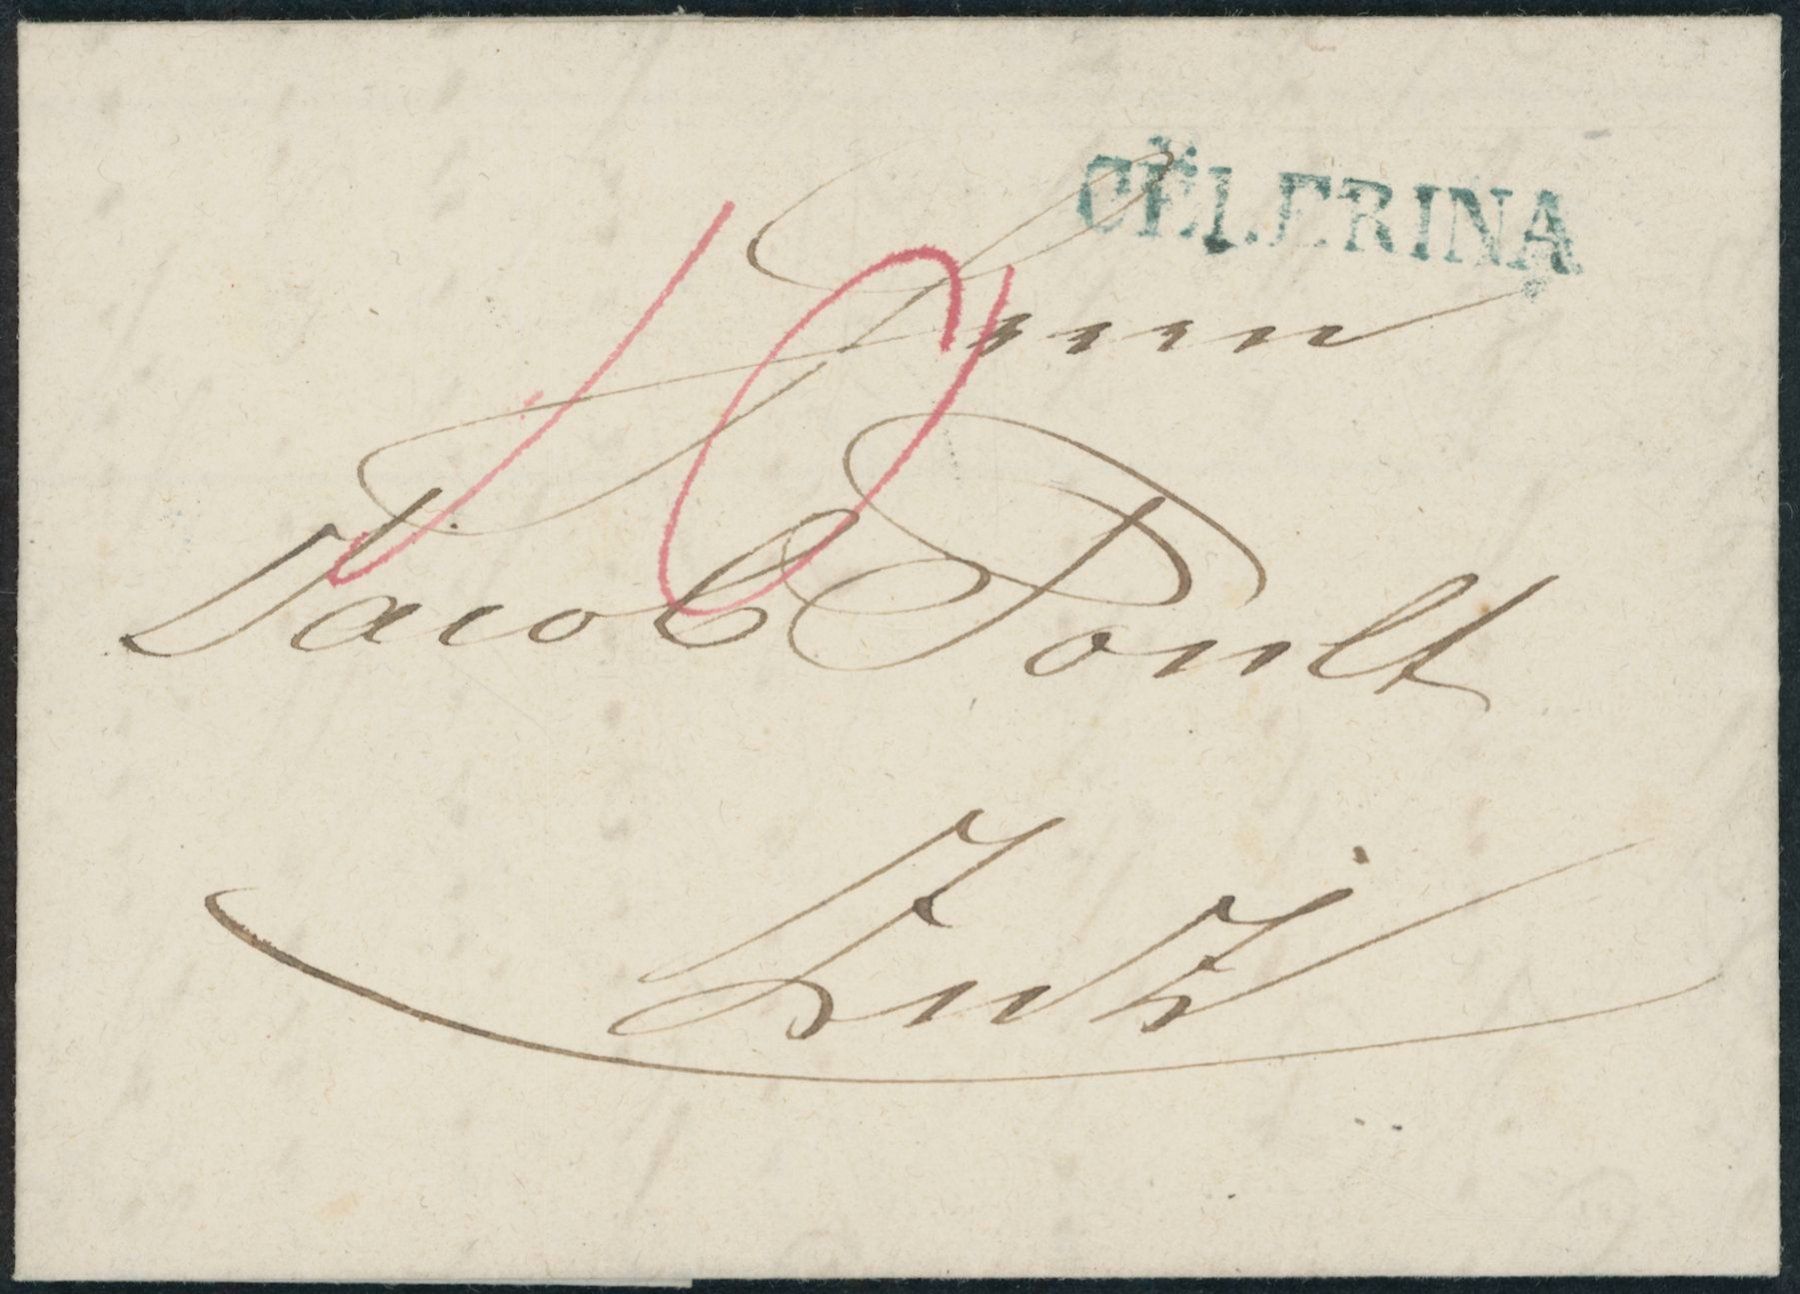 CËLERINA
10
Herrn
Jacob Poult
Zutz